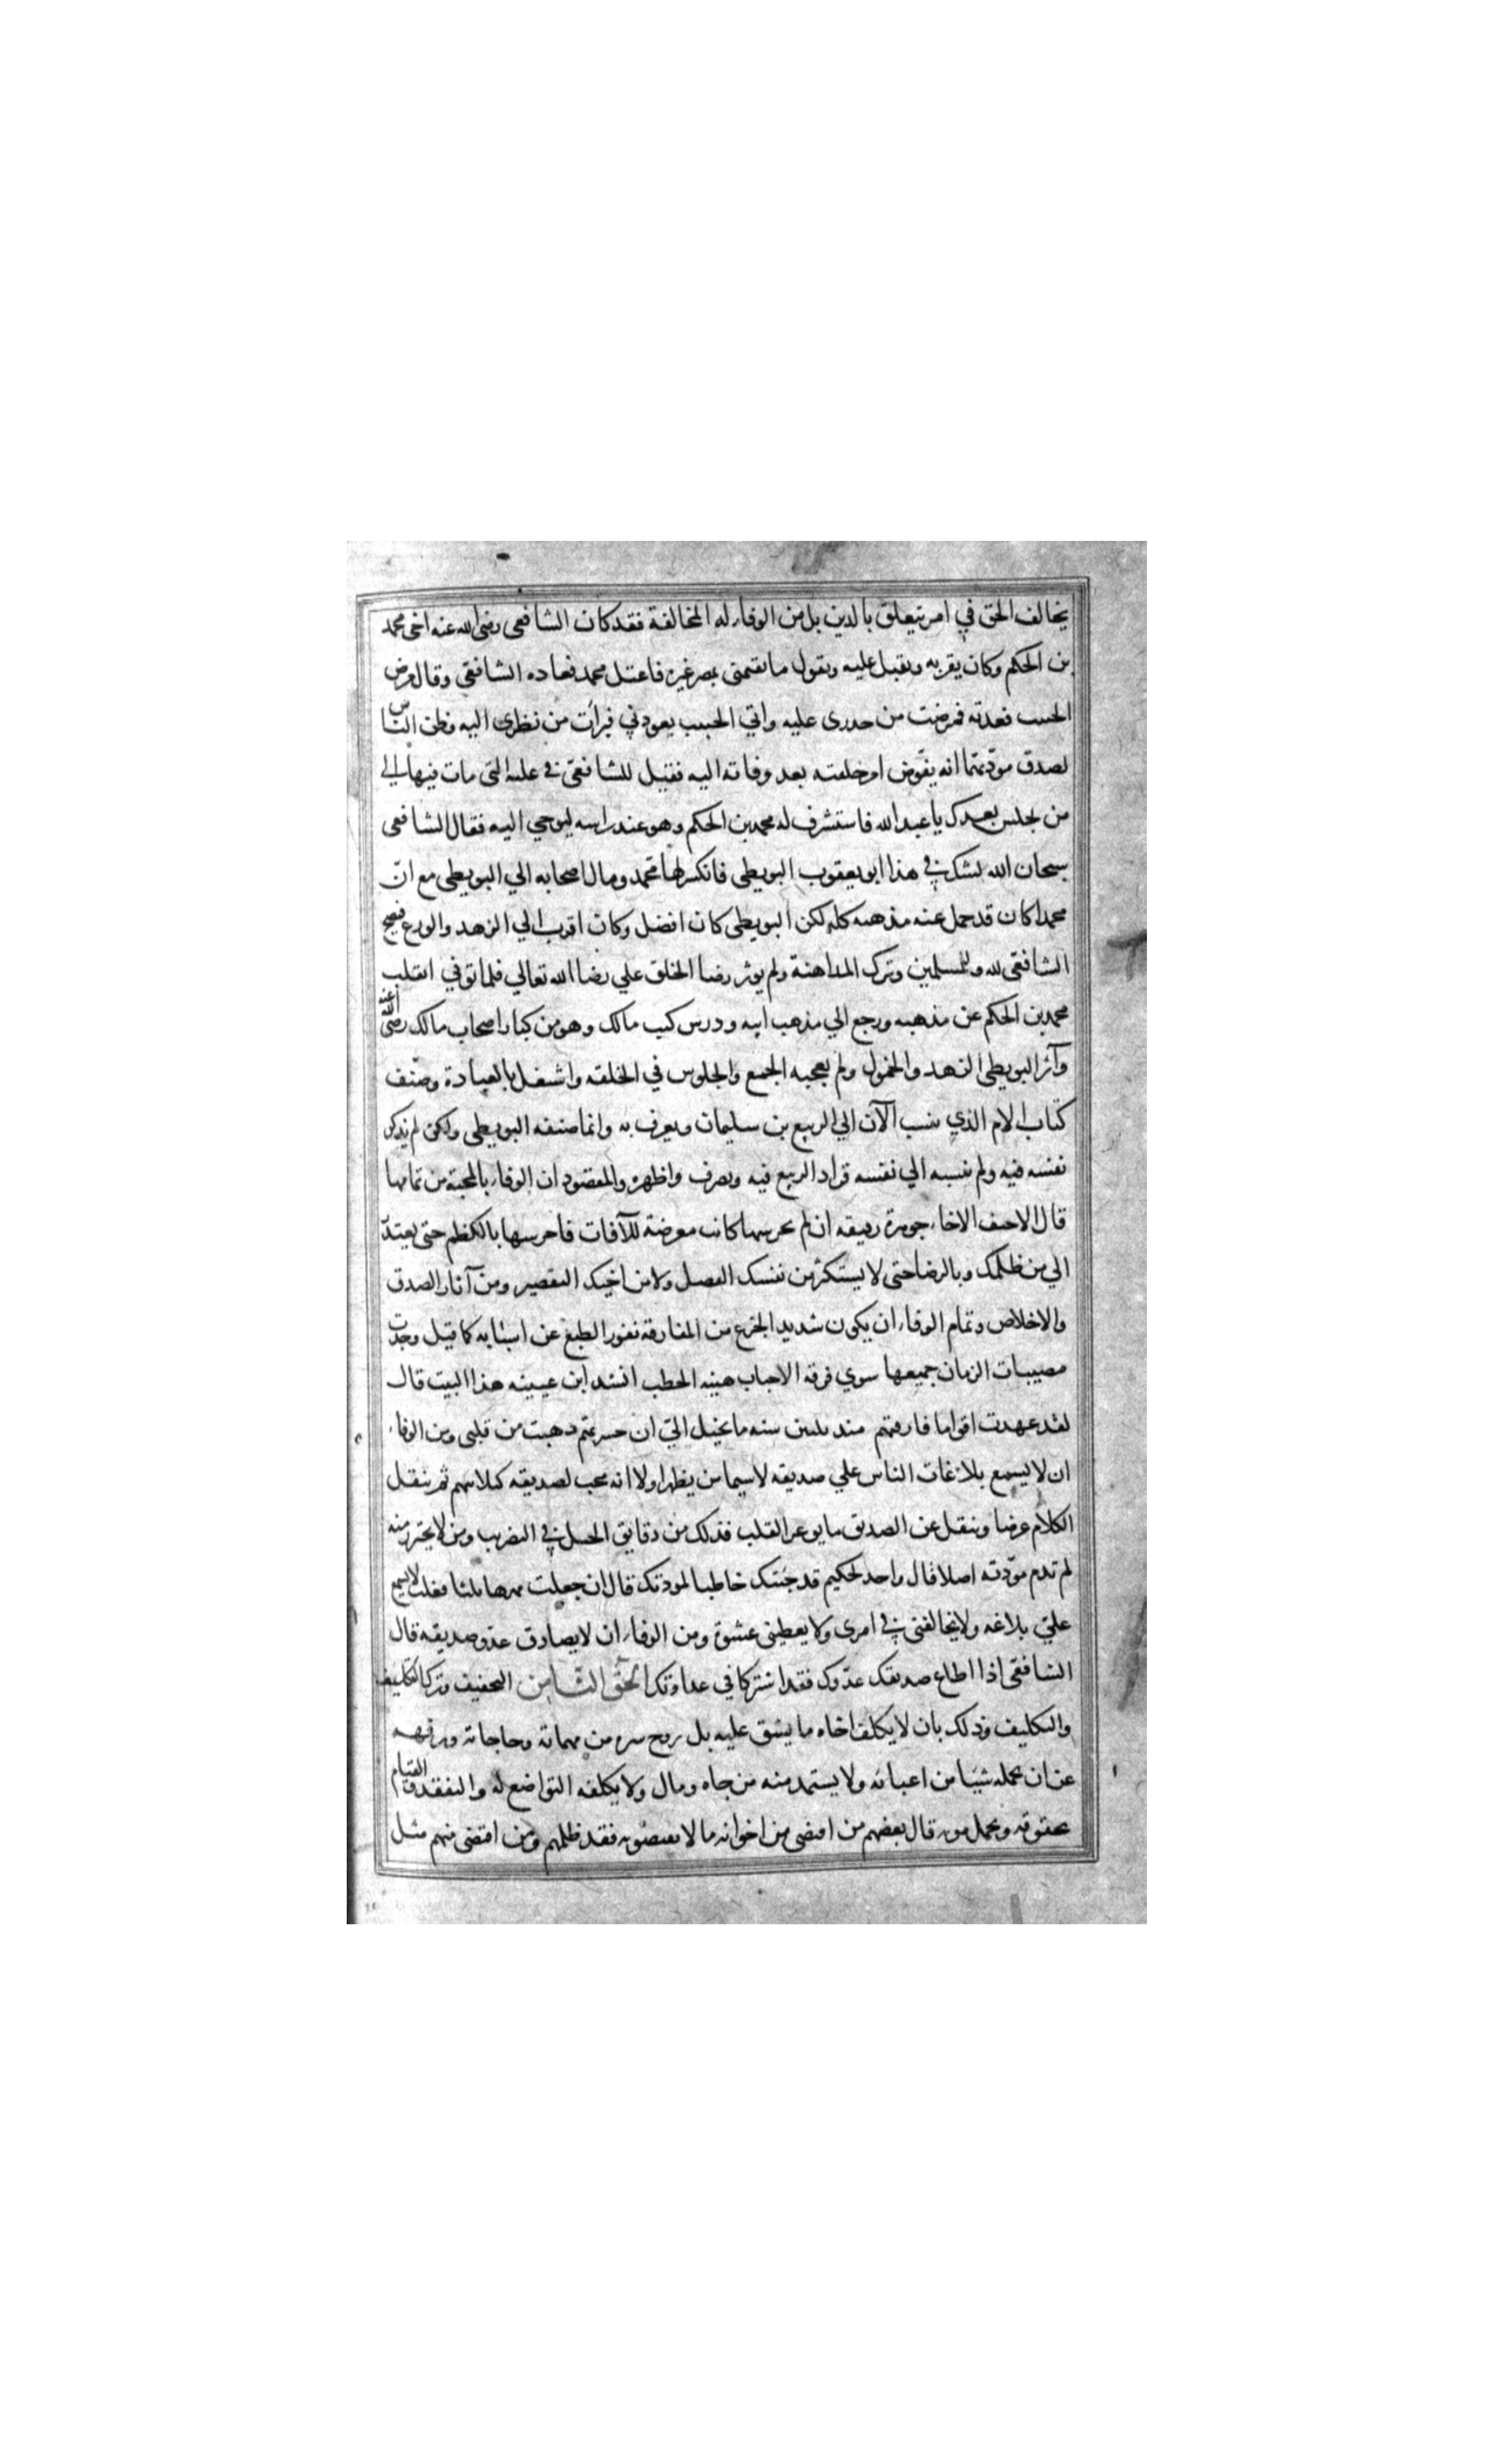 يخالف الحق في امر يتعلق بالدين بل من الوفاء له المخالفة فقد كان الشافعى رضى الله عنه اخى محمد
بن الحكم وكان يقربه ويقبل عليه ويقول ما يقيمنى بمصر غيره فاعتل محمد فعاده الشافعى وقال مرض
الحبيب فعدته فمرضت من حذرى عليه واتي الحبيب يعودني فبرأت من نظرى اليه وظن الناس
لصدق مودتهما انه يفوض امر حلقته بعد وفاته اليه فقيل للشافعى في علته التى مات فيها الى
من نجلس بعدك يا عبد الله فاستشرف له محمد بن الحكم وهو عند راسه ليوحي اليه فقال الشافعى
سبحان الله يشك في هذا ابو يعقوب البويطى فانكسر لها محمد ومال اصحابه الي البويطى مع ان
محمدا كان قد حمل عنه مذهبه كله لكن البويطى كان افضل وكان اقرب الي الزهد والورع فنصح
الشافعى لله وللمسلمين وترك المداهنة ولم يوثر رضا الخلق علي رضا الله تعالي فلما توفي انقلب
محمد بن الحكم عن مذهبه ورجع الي مذهب ابيه ودرس كتب مالك وهو من كبار اصحاب مالك رضى الله عنه
وآثر البويطى الزهد والخمول ولم يعجبه الجمع والجلوس في الحلقه واشتغل بالعبادة وصنف
كتاب الام الذي ينسب الآن الي الربيع بن سليمان ويعرف به وانما صنفه البويطى ولكن لم يذكر
نفسه فيه ولم ينسبه الي نفسه فزاد الربيع فيه وتصرف واظهره والمقصود ان الوفاء بالمحبة من تمامها
قال الاحنف الاخاء جوهرة رقيقه ان لم تحرسها كانت معرضة للآفات فاحرسها بالكظم حتى يعتذر
الي من ظلمك وبالرضا حتى لا يستكثر من نفسك الفضل ولا من اخيك التقصير ومن آثار الصدق
والاخلاص وتمام الوفاء ان يكون شديد الجزع من المفارقة نفور الطبع عن اسبابه كما قيل وجدت
مصيبات الزمان جميعها سوي فرقة الاحباب هينة الخطب انشد ابن عيينه هذا البيت قال
لقد عهدت اقواما فارقتهم منذ ثلثين سنه ما يخيل الي ان حسرتهم ذهبت من قلبى ومن الوفاء
ان لا يسمع بلاغات الناس علي صديقه لا سيما من يظهر اولا انه محب لصديقه كيلا يتهم ثم ينقل
الكلام عرضا وينقل عن الصديق ما يوغر القلب فذلك من دقايق الحيل في التضريب ومن لا يحترز منه
لم تدم مودته اصلا قال واحد لحكيم قد جئتك خاطبا لمودتك قال ان جعلت مهرها ثلثا فعلت لا تسمع
علي بلاغه ولا تخالفنى في امرى ولا يعطينى عشوة ومن الوفاء ان لا يصادق عدو صديقه قال
الشافعى اذا اطاع صديقك عدوك فقد اشتركا في عداوتك الحق الثامن التخفيف وترك التكليف
والتكليف وذلك بان لا يكلف اخاه ما يشق عليه بل يروح سره من مهماته وحاجاته ويرفهه
عن ان يحمله شيئا من اعبائه ولا يستمد منه من جاه ومال ولا يكلفه التواضع له والتفقد والقيام
بحقوقه وتحمل مونه قال بعضهم من اقتضى من اخوانه ما لا يقتضونه فقد ظلمهم ومن اقتضى منهم مثل